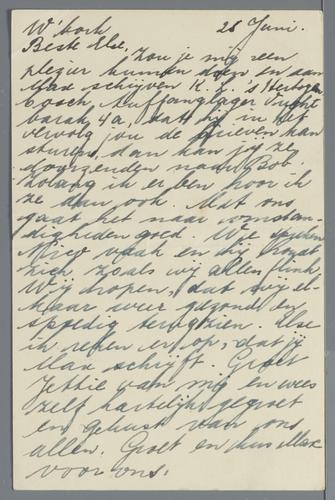 W'bork 26 Juni.
Beste Else, Zou je mij een
plezier kunnen doen en aan
Max schrijven K. L. 's Hertogen
bosch Auffanglager Vught
barak 4a, dat hij in het
vervolg jou de brieven kan
sturen, dan kan jij ze
doorzenden naar Bob.
Zolang ik er ben hoor ik
ze dan ook. Met ons
gaat het naar omstan-
digheden goed. We spreken
vaak en hij houdt
zich, zoals wij allen flink.
Wij hopen, dat wij el-
kaar weer gezond en
spoedig terugzien. Else
ik reken er op, dat jij
Max schrijft. Groet
Jettie van mij en wees
zelf hartelijk gegroet
en gekust van ons
allen. Groet en kus Max
voor ons.